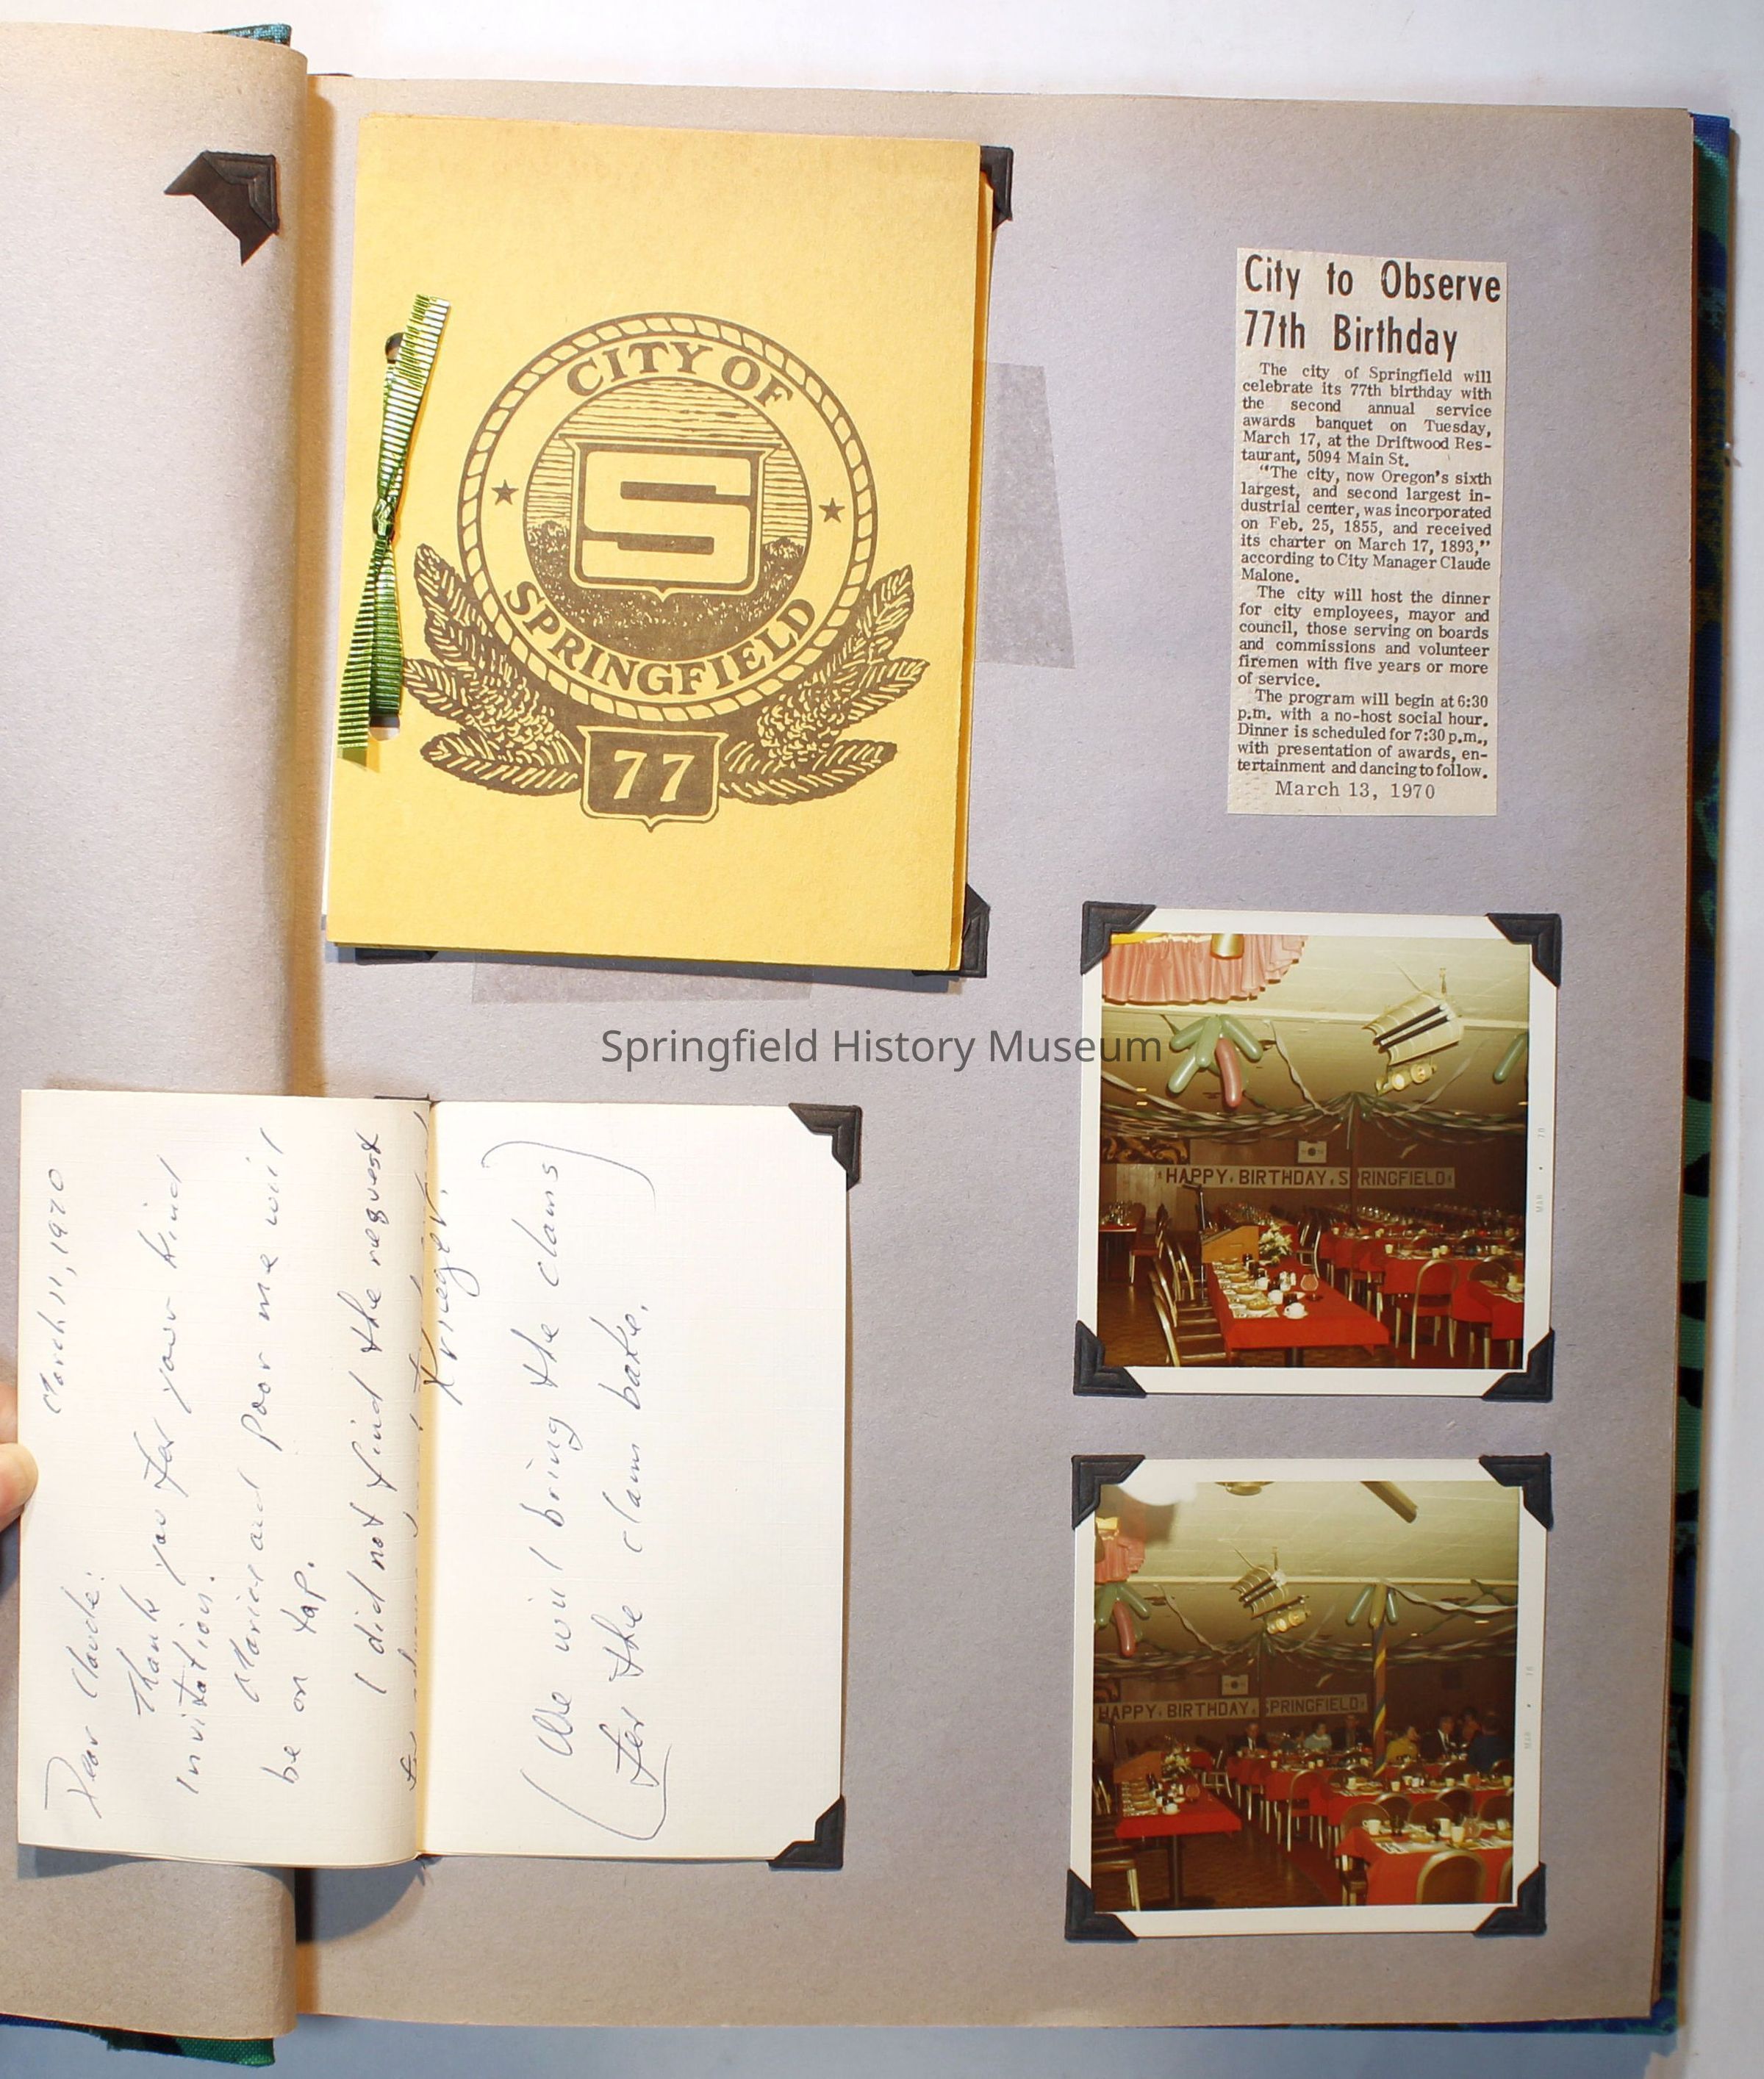 CITY OF
S
SPRINGFIELD
77
City to Observe
77th Birthday
The city of Springfield will
celebrate its 77th birthday with
the second annual service
awards banquet on Tuesday,
March 17, at the Driftwood Res-
taurant, 5094 Main St.
"The city, now Oregon's sixth
largest, and second largest in-
dustrial center, was incorporated
on Feb. 25, 1855, and received
its charter on March 17, 1893,"
according to City Manager Claude
Malone.
The city will host the dinner
for city employees, mayor and
council, those serving on boards
and commissions and volunteer
firemen with five years or more
of service.
The program will begin at 6:30
p.m. with a no-host social hour.
Dinner is scheduled for 7:30 p.m.,
with presentation of awards, en-
tertainment and dancing to follow.
March 13, 1970
Springfield History Museum
HAPPY BIRTHDAY SPRINGFIELD
MAR • 70
HAPPY BIRTHDAY SPRINGFIELD
MAR • 70
March 11, 1970
Dear Claude:
Thank you for your kind
invitation.
and poor me will
be on tap.
I did not find the request
Krieger
(We will bring the clams)
for the clam bake.